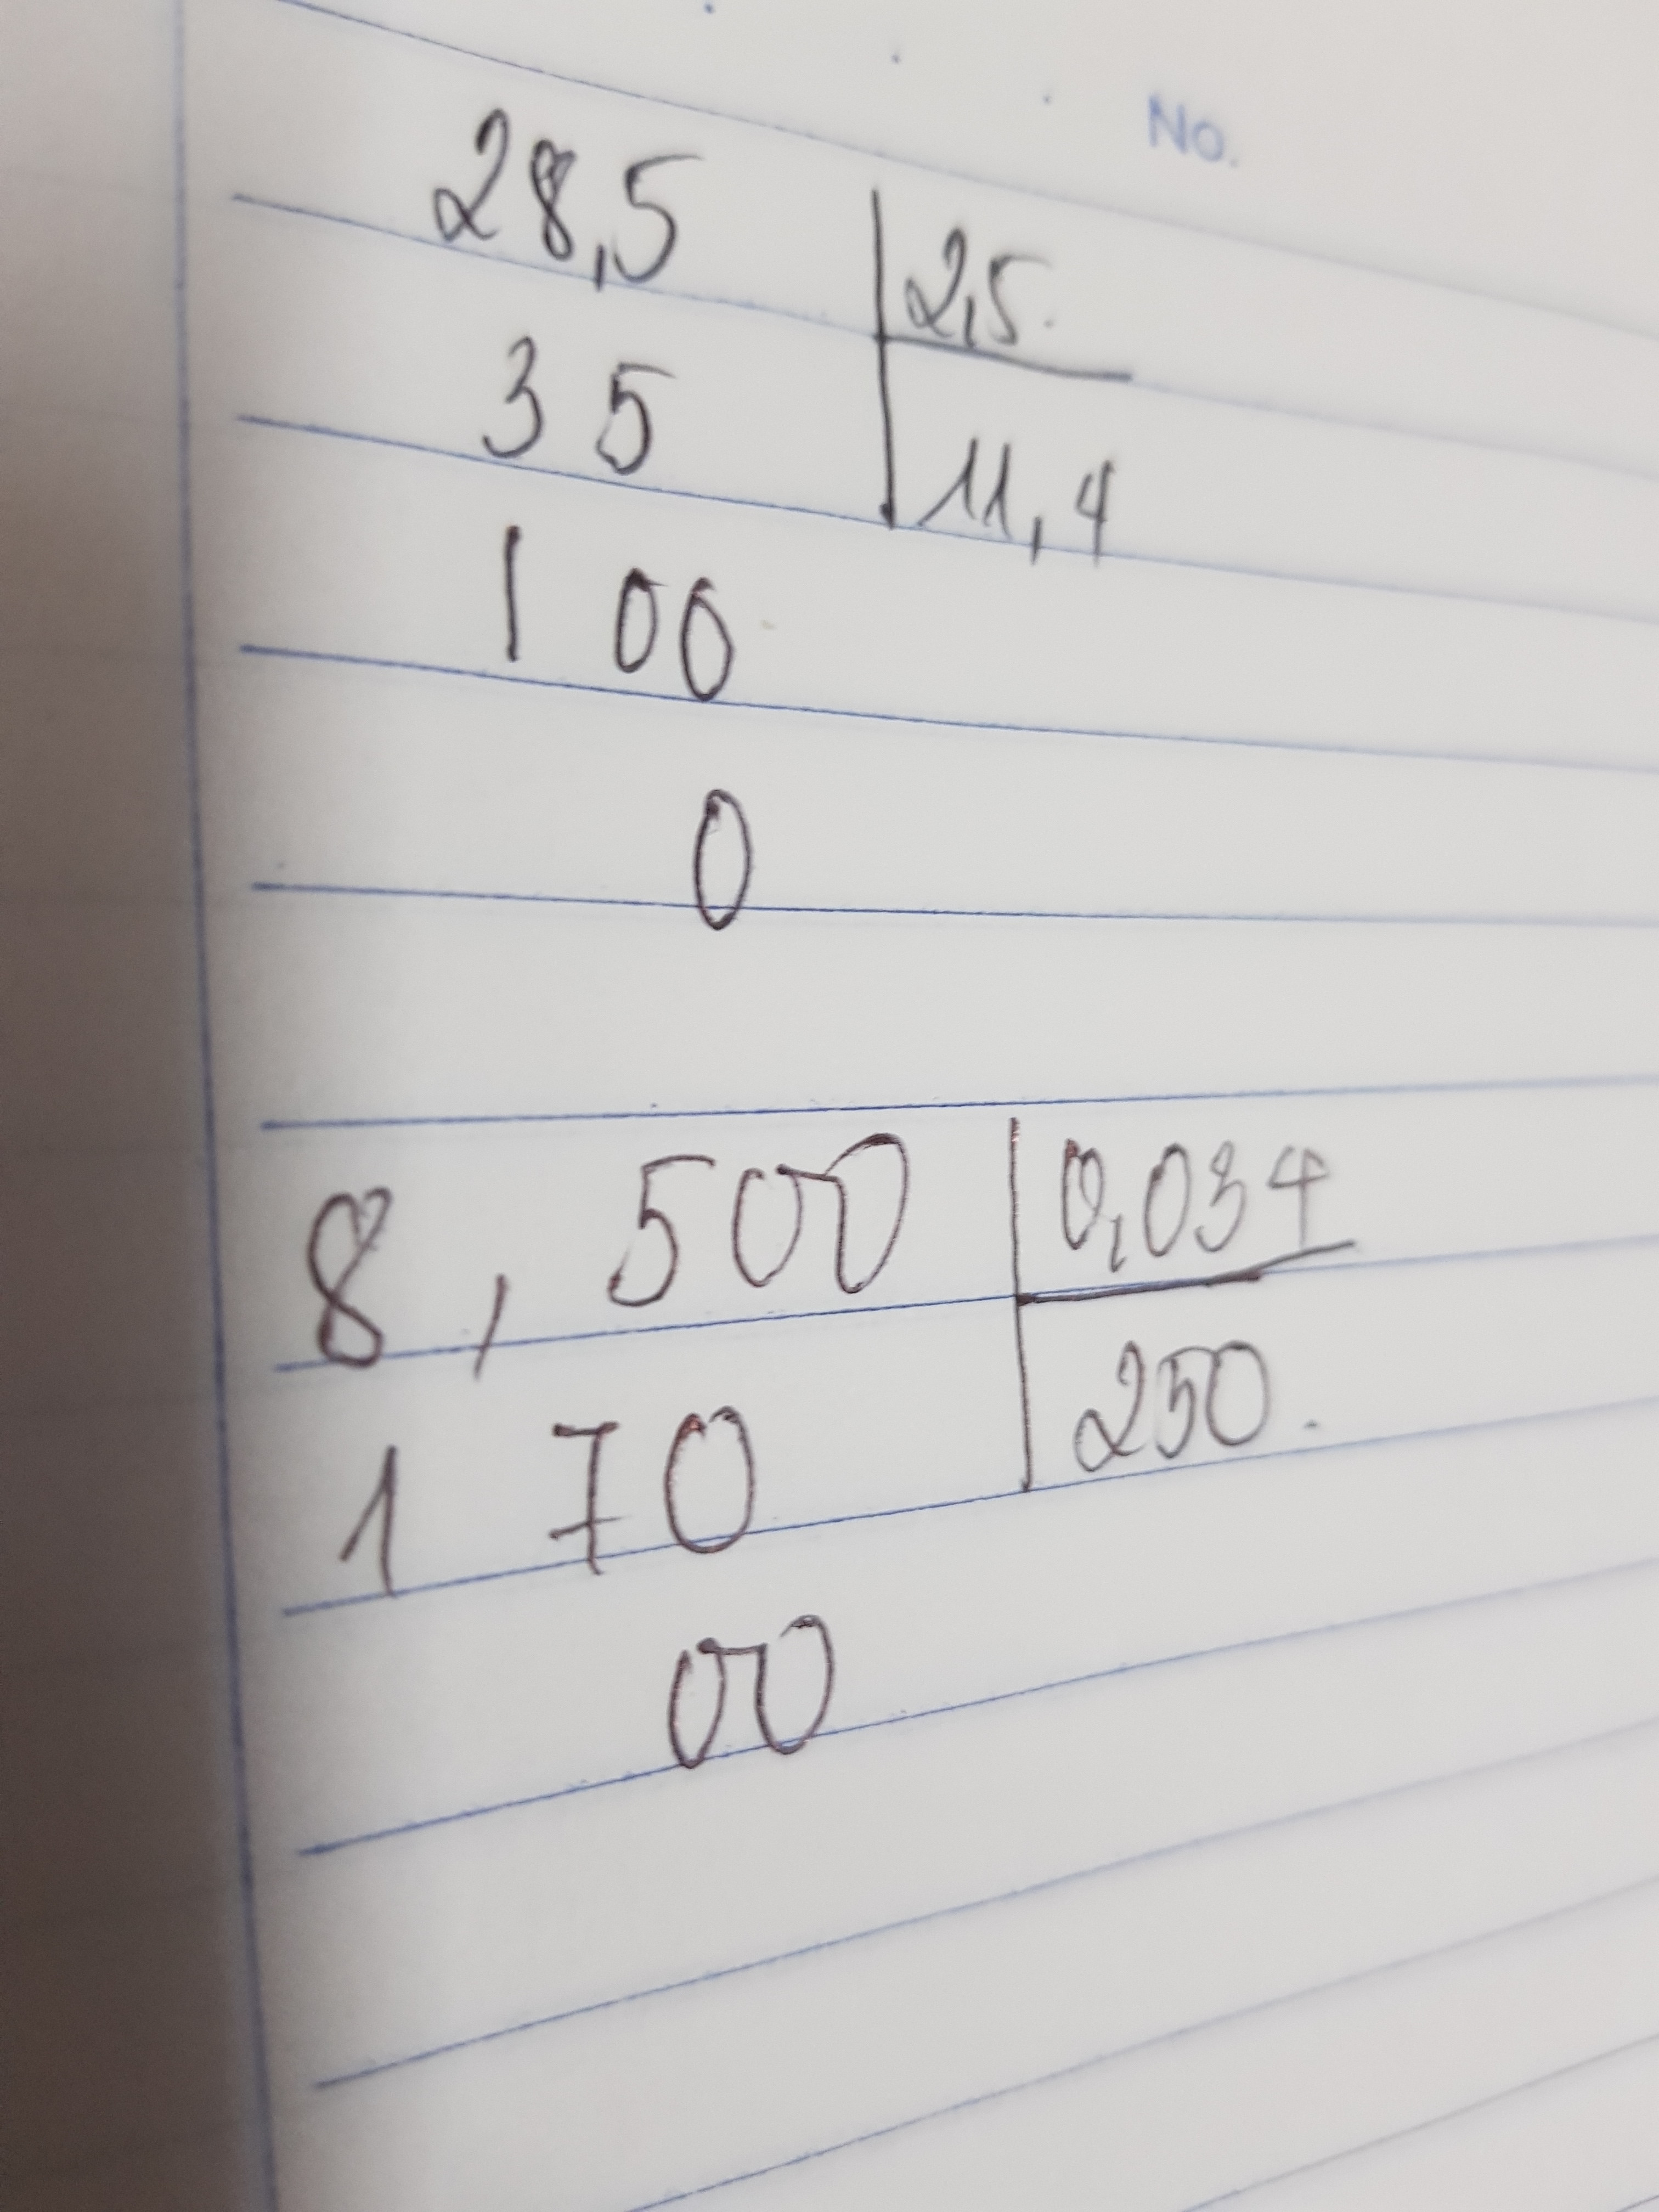 No.
28,5 2,5
35 11,4
100
0
8,500 0,034
170 250.
00